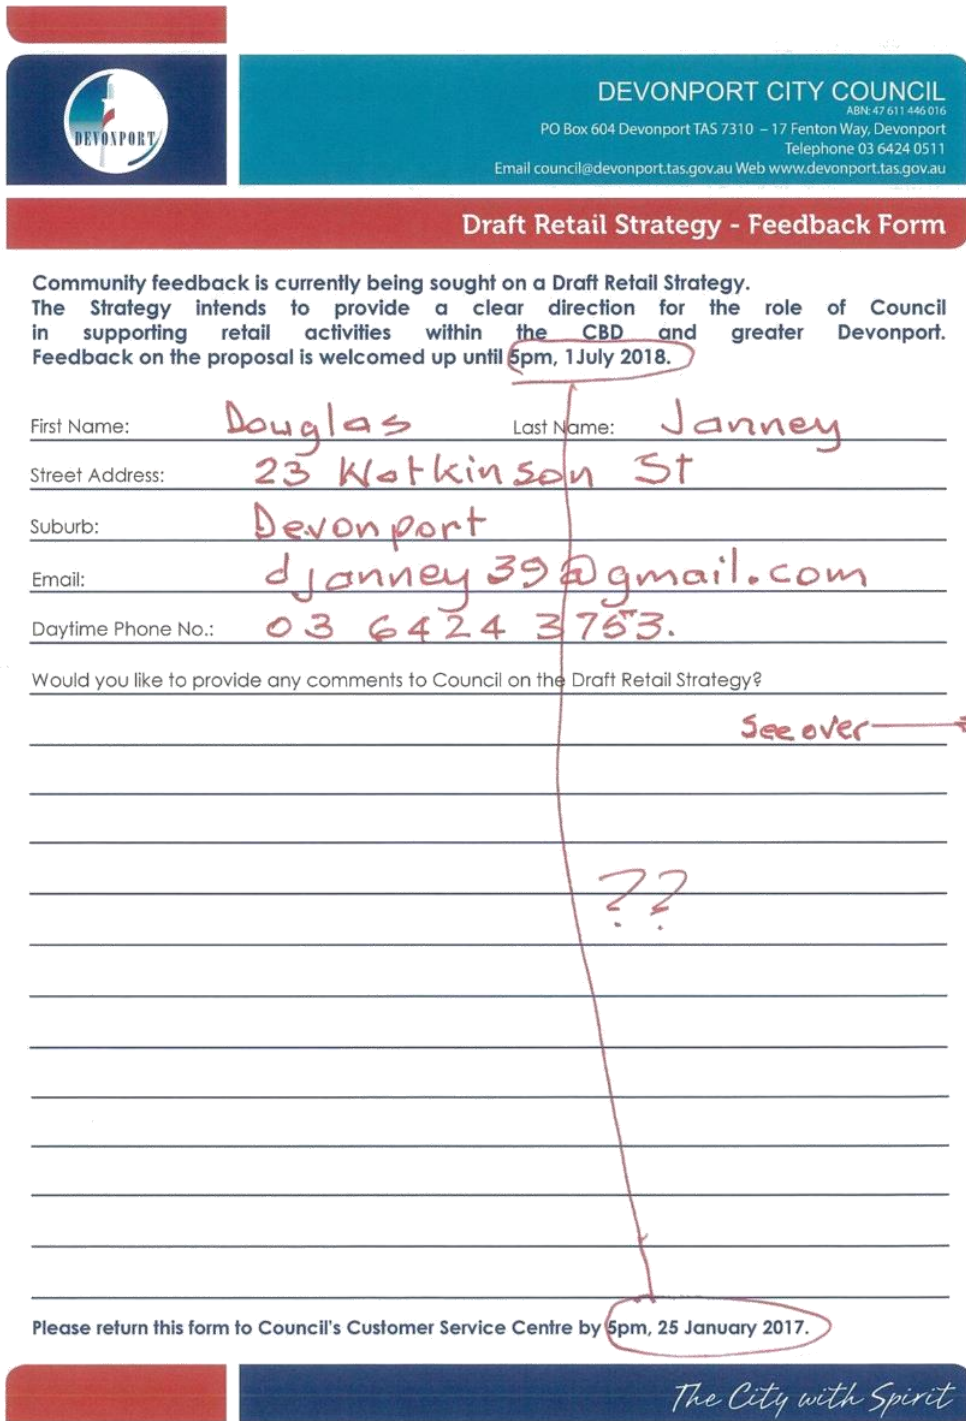 DEVONPORT
DEVONPORT CITY COUNCIL
ABN: 47 611 446 016
PO Box 604 Devonport TAS 7310 – 17 Fenton Way, Devonport
Telephone 03 6424 0511
Email council@devonport.tas.gov.au Web www.devonport.tas.gov.au
Draft Retail Strategy - Feedback Form
Community feedback is currently being sought on a Draft Retail Strategy.
The Strategy intends to provide a clear direction for the role of Council
in supporting retail activities within the CBD and greater Devonport.
Feedback on the proposal is welcomed up until 5pm, 1July 2018.
First Name: Douglas Last Name: Janney
Street Address: 23 Watkinson St
Suburb: Devonport
Email: djanney39@gmail.com
Daytime Phone No.: 03 6424 3753.
Would you like to provide any comments to Council on the Draft Retail Strategy?
See over
??
Please return this form to Council's Customer Service Centre by 5pm, 25 January 2017.
The City with Spirit